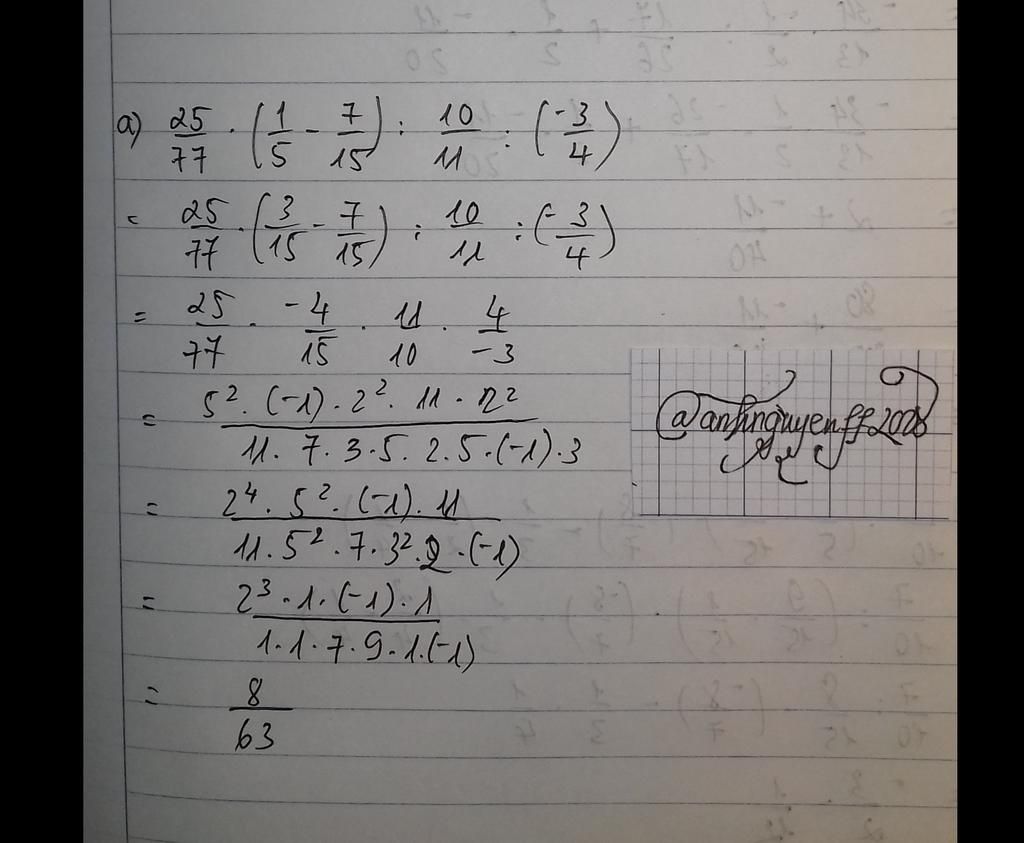 a) 25/77 · (1/5 - 7/15) : 10/11 : (-3/4)
= 25/77 · (3/15 - 7/15) : 10/11 : (-3/4)
= 25/77 · -4/15 · 11/10 · 4/-3
= 5² · (-1) · 2² · 11 · 2² / 11 · 7 · 3 · 5 · 2 · 5 · (-1) · 3
= 2⁴ · 5² · (-1) · 11 / 11 · 5² · 7 · 3² · 2 · (-1)
= 2³ · 1 · (-1) · 1 / 1 · 1 · 7 · 9 · 1 · (-1)
= 8/63
@anhnguyenff2008